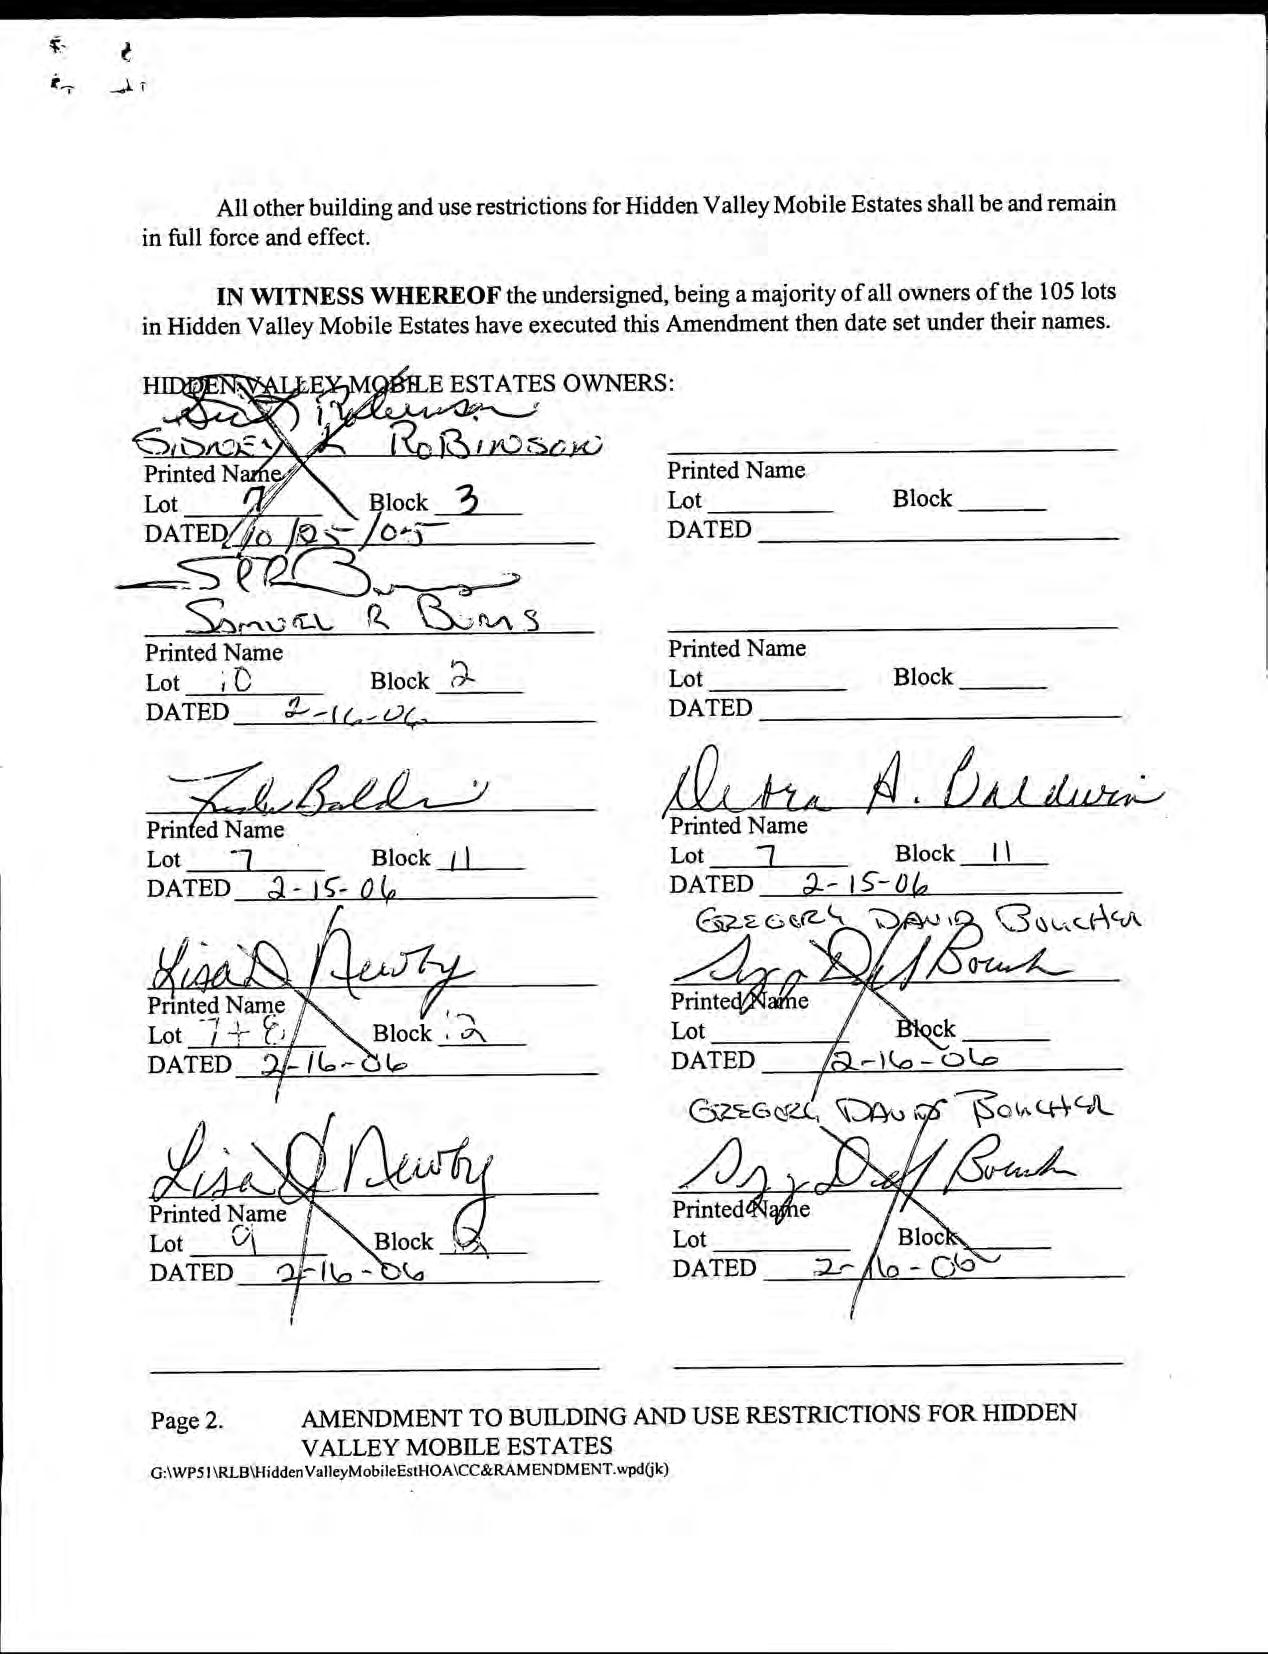 All other building and use restrictions for Hidden Valley Mobile Estates shall be and remain
in full force and effect.
IN WITNESS WHEREOF the undersigned, being a majority of all owners of the 105 lots
in Hidden Valley Mobile Estates have executed this Amendment then date set under their names.
HIDDEN VALLEY MOBILE ESTATES OWNERS:
SIDNEY L ROBINSON
Printed Name
Lot 7 Block 3
DATED 10/25/05
Printed Name
Lot Block
DATED
SAMUEL R Burns
Printed Name
Lot 10 Block 2
DATED 2-16-06
Printed Name
Lot Block
DATED
Printed Name
Lot 7 Block 11
DATED 2-15-06
Debra A. Baldwin
Printed Name
Lot 7 Block 11
DATED 2-15-06
Lisa D Newby
Printed Name
Lot 7+8 Block 2
DATED 2-16-06
GREGORY DAVID BOUCHER
Printed Name
Lot Block
DATED 2-16-06
Lisa D Newby
Printed Name
Lot 9 Block 2
DATED 2-16-06
GREGORY DAVID BOUCHER
Printed Name
Lot Block
DATED 2-16-06
Page 2. AMENDMENT TO BUILDING AND USE RESTRICTIONS FOR HIDDEN
VALLEY MOBILE ESTATES
G:\WP51\RLB\HiddenValleyMobileEstHOA\CC&RAMENDMENT.wpd(jk)